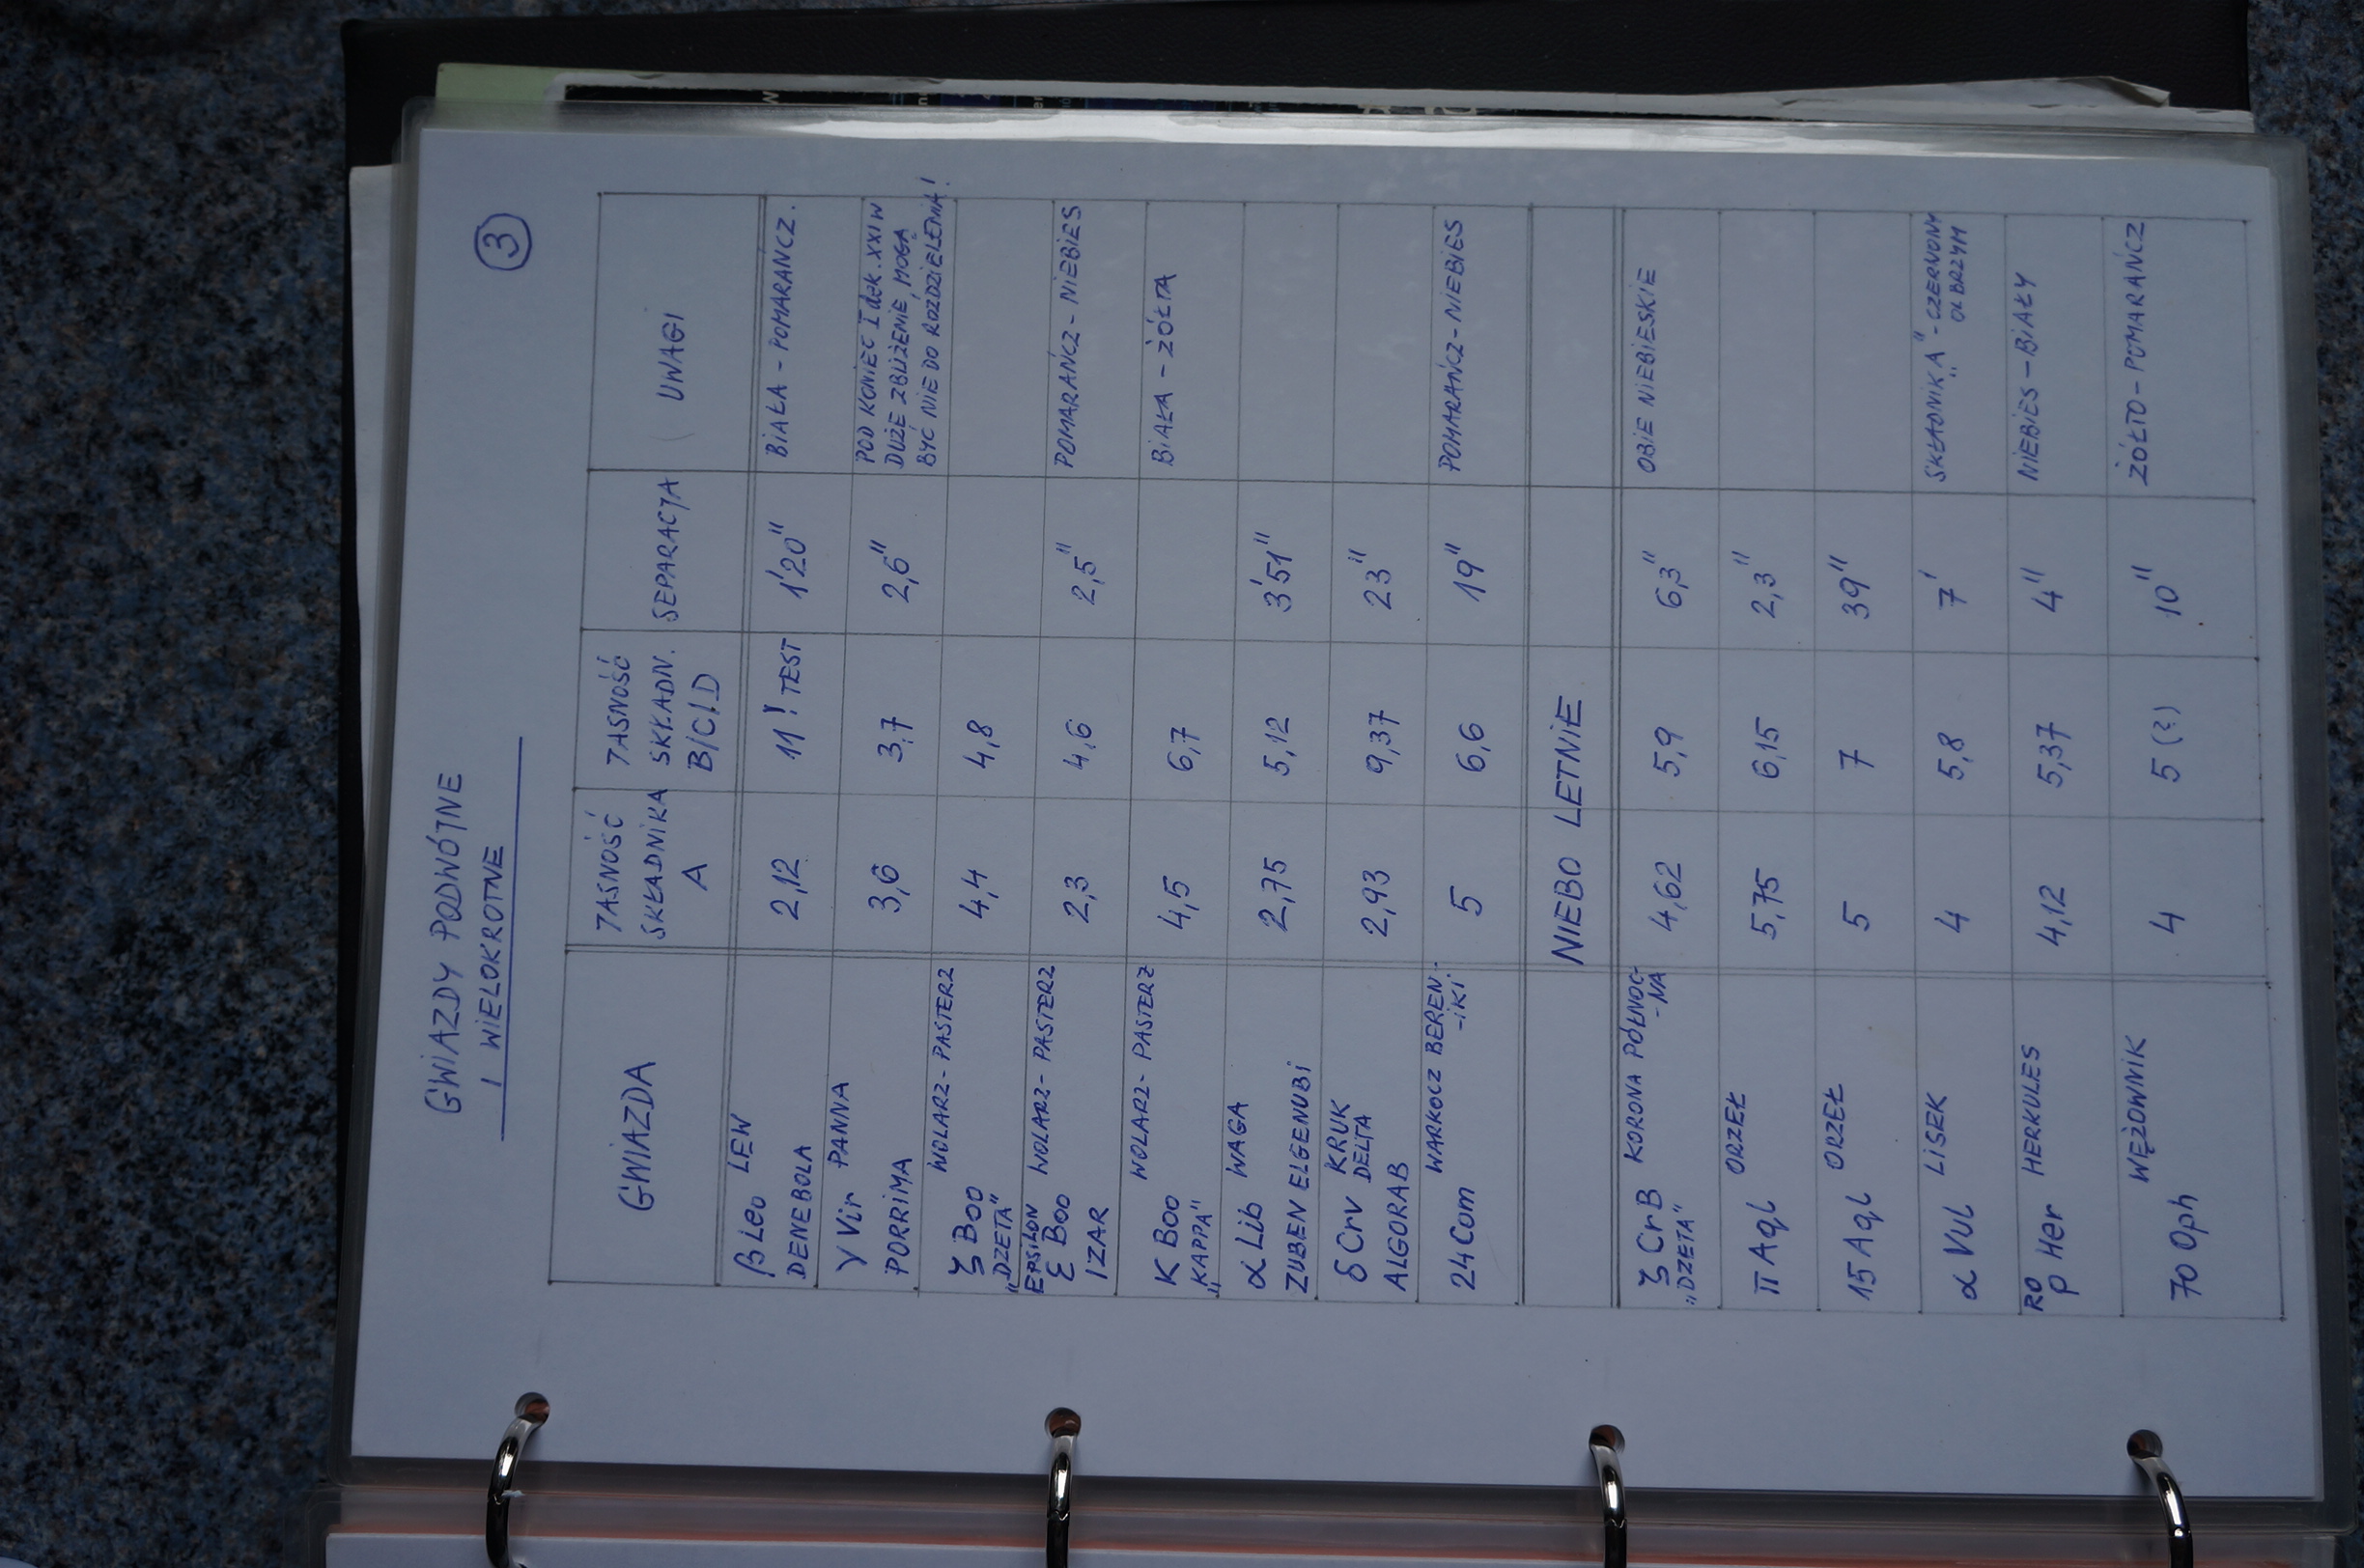 GWIAZDY PODWÓJNE
I WIELOKROTNE
3
GWIAZDA JASNOŚĆ SKŁADNIKA A JASNOŚĆ SKŁADN. B/C/D SEPARACJA UWAGI
β Leo LEW DENEBOLA 2,12 11! TEST 1'20" BIAŁA - POMARAŃCZ.
γ Vir PANNA PORRIMA 3,6 3,7 2,6" POD KONIEC I dek. XXI W DUŻE ZBLIŻENIE, MOGĄ BYĆ NIE DO ROZDZIELENIA!
ζ Boo WOLARZ - PASTERZ „DZETA" 4,4 4,8
EPSILON ε Boo WOLARZ - PASTERZ IZAR 2,3 4,6 2,5" POMARAŃCZ - NIEBIES
K Boo WOLARZ - PASTERZ „KAPPA" 4,5 6,7 BIAŁA - ŻÓŁTA
α Lib WAGA ZUBEN ELGENUBI 2,75 5,12 3'51"
δ Crv KRUK DELTA ALGORAB 2,93 9,37 23"
24 Com WARKOCZ BEREN- -IKI 5 6,6 19" POMARAŃCZ - NIEBIES
NIEBO LETNIE
ζ CrB KORONA PÓŁNOC- -NA „DZETA" 4,62 5,9 6,3" OBIE NIEBIESKIE
π Aql ORZEŁ 5,75 6,15 2,3"
15 Aql ORZEŁ 5 7 39"
α Vul LISEK 4 5,8 7' SKŁADNIK „A" - CZERWONY OLBRZYM
RO ρ Her HERKULES 4,12 5,37 4" NIEBIES - BIAŁY
70 Oph WĘŻOWNIK 4 5 (?) 10" ŻÓŁTO - POMARAŃCZ